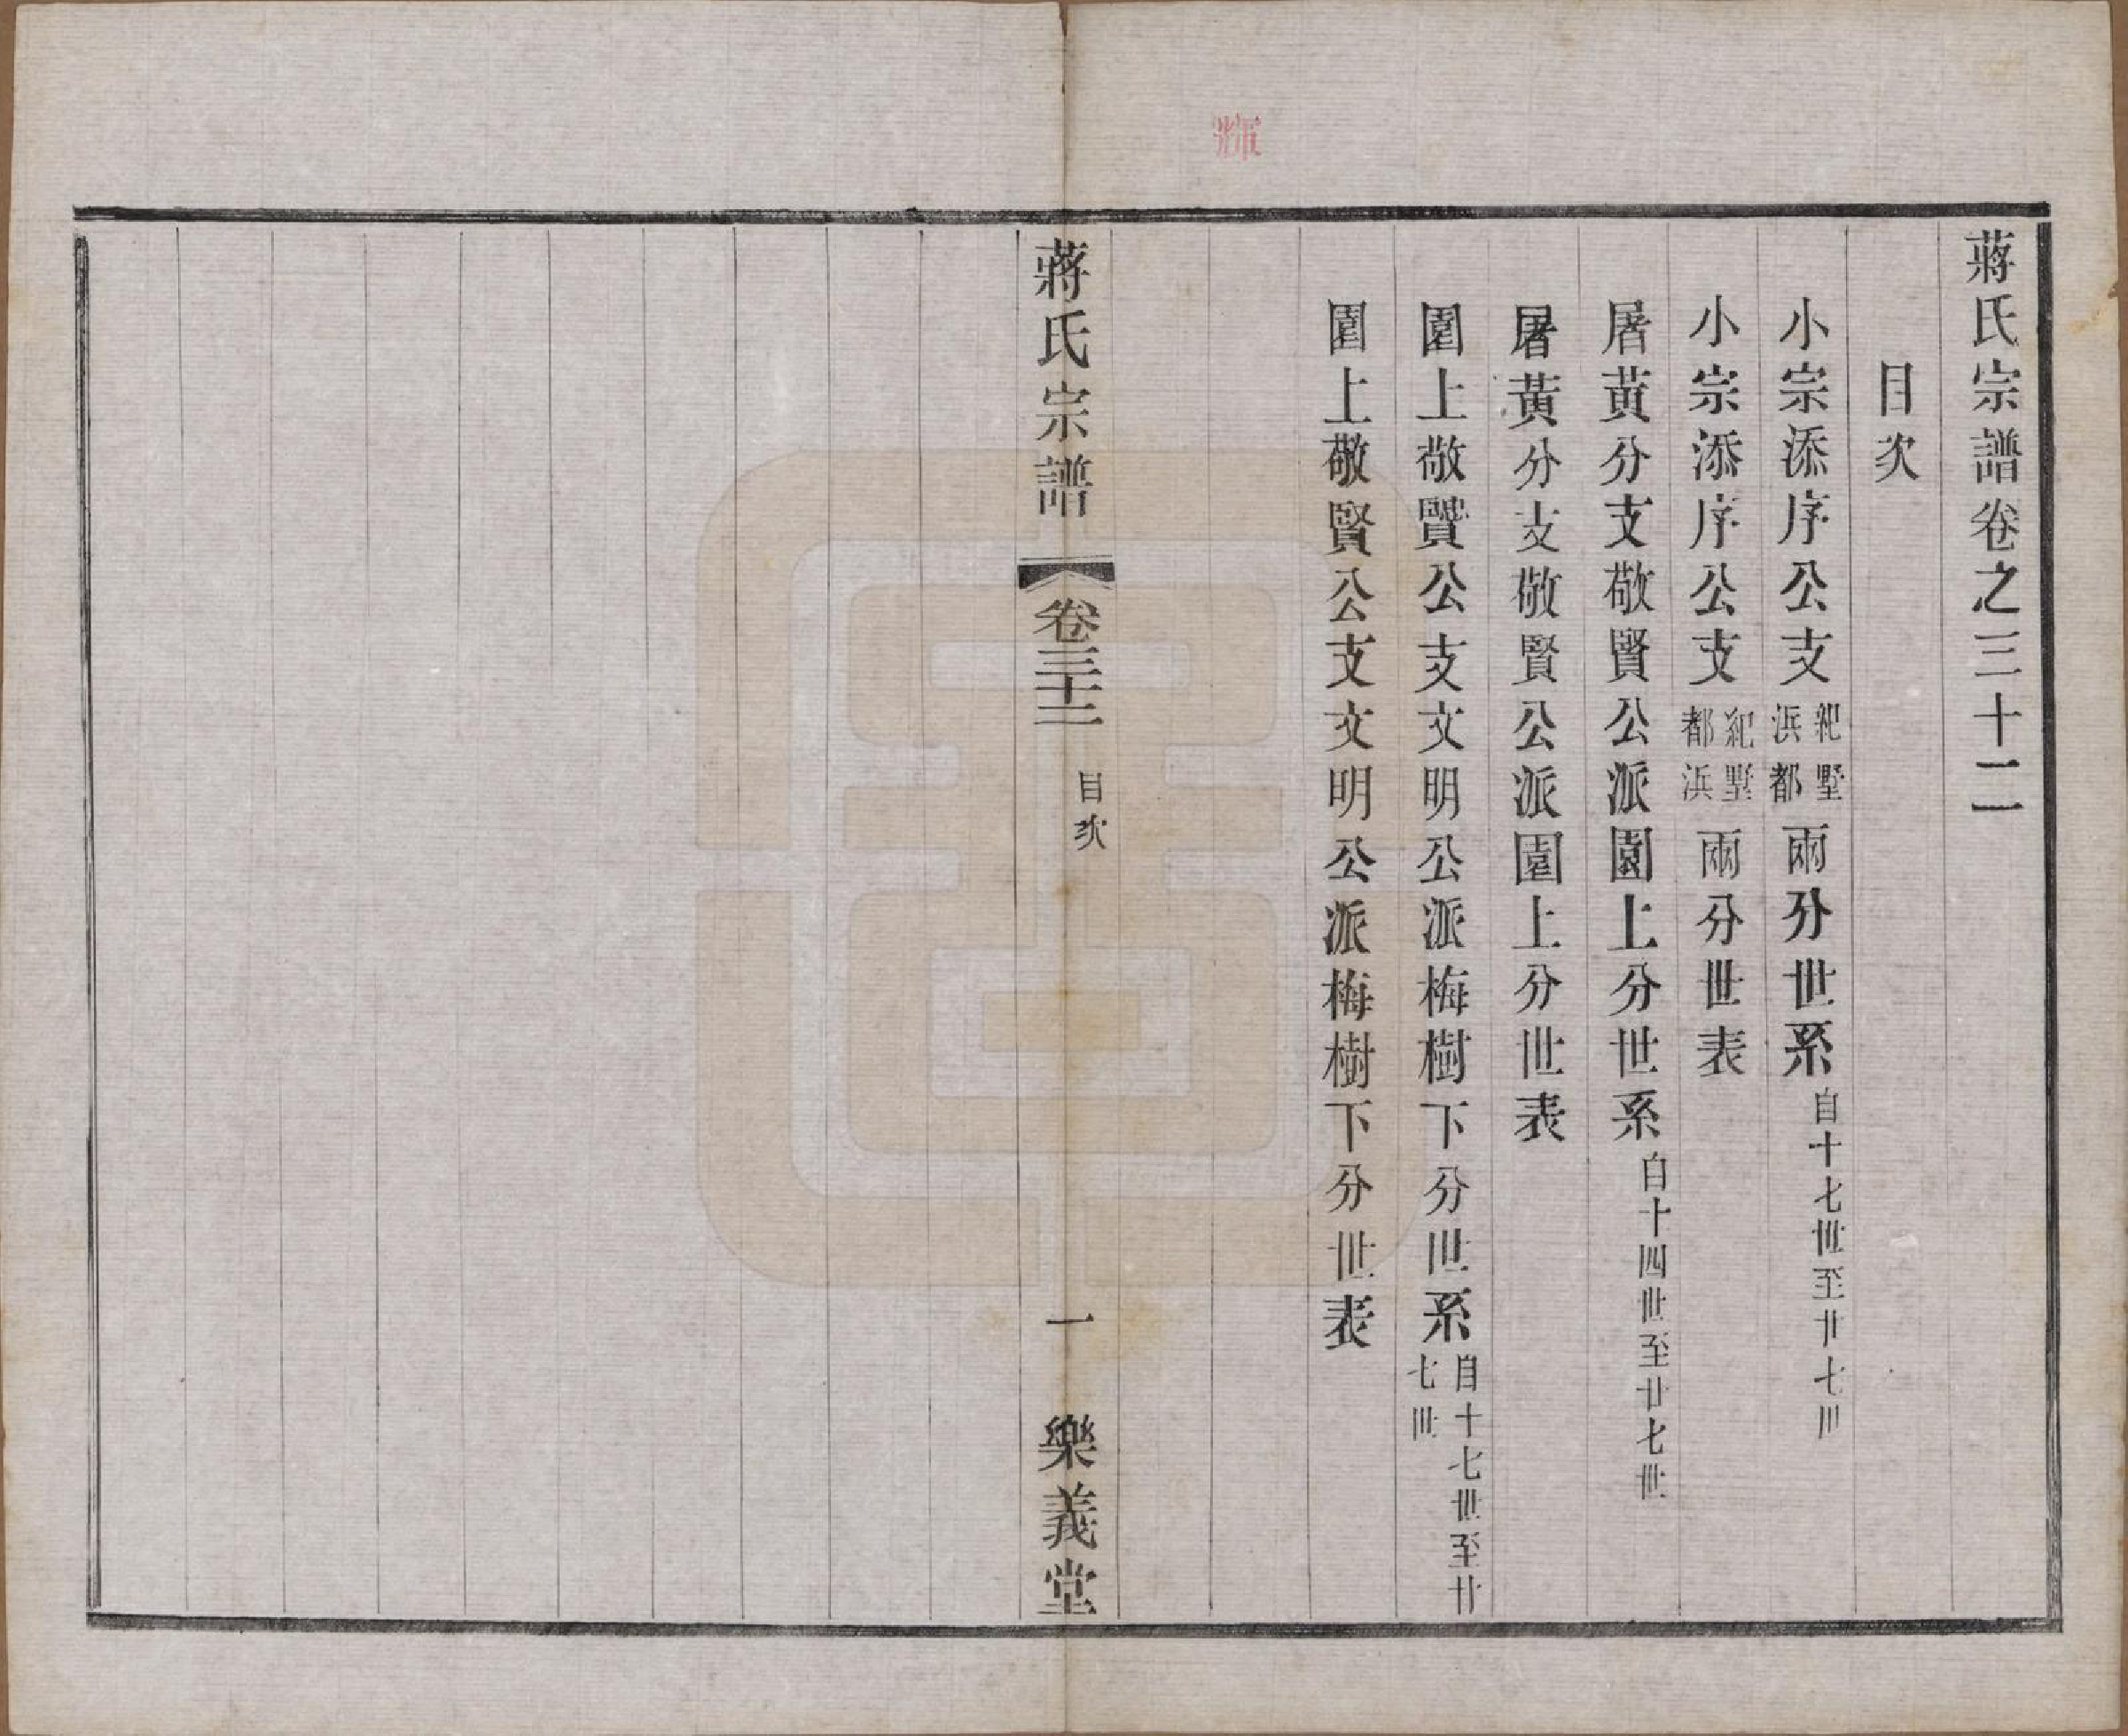 蔣氏宗譜卷之三十二
目次
小宗添序公支紀墅浜都兩分世系自十七世至廿七世
小宗添序公支紀墅都浜兩分世表
屠黃分支敬賢公派園上分世系自十四世至廿七世
屠黃分支敬賢公派園上分世表
園上敬賢公支文明公派梅樹下分世系自十七世至廿七世
園上敬賢公支文明公派梅樹下分世表
蔣氏宗譜 卷三十二 目次 一 樂義堂